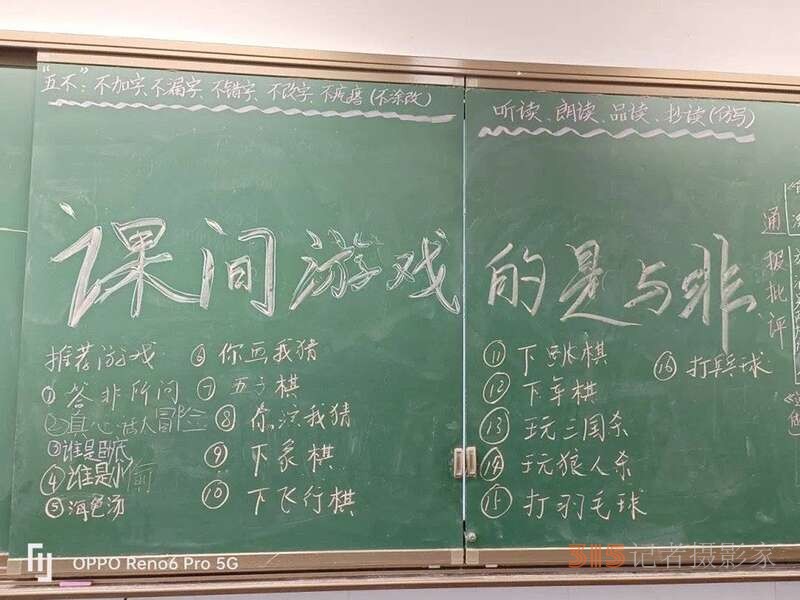 “五不”：不加字、不漏字、不错字、不改字、不疙瘩(不涂改)
听读、朗读、品读、抄读(仿写)
课间游戏的是与非
推荐游戏
①答非所问
②真心话大冒险
③谁是卧底
④谁是小偷
⑤海龟汤
⑥你画我猜
⑦五子棋
⑧你演我猜
⑨下象棋
⑩下飞行棋
⑪下跳棋
⑫下军棋
⑬玩三国杀
⑭玩狼人杀
⑮打羽毛球
⑯打乒乓球
通报批评
OPPO Reno6 Pro 5G
315记者摄影家